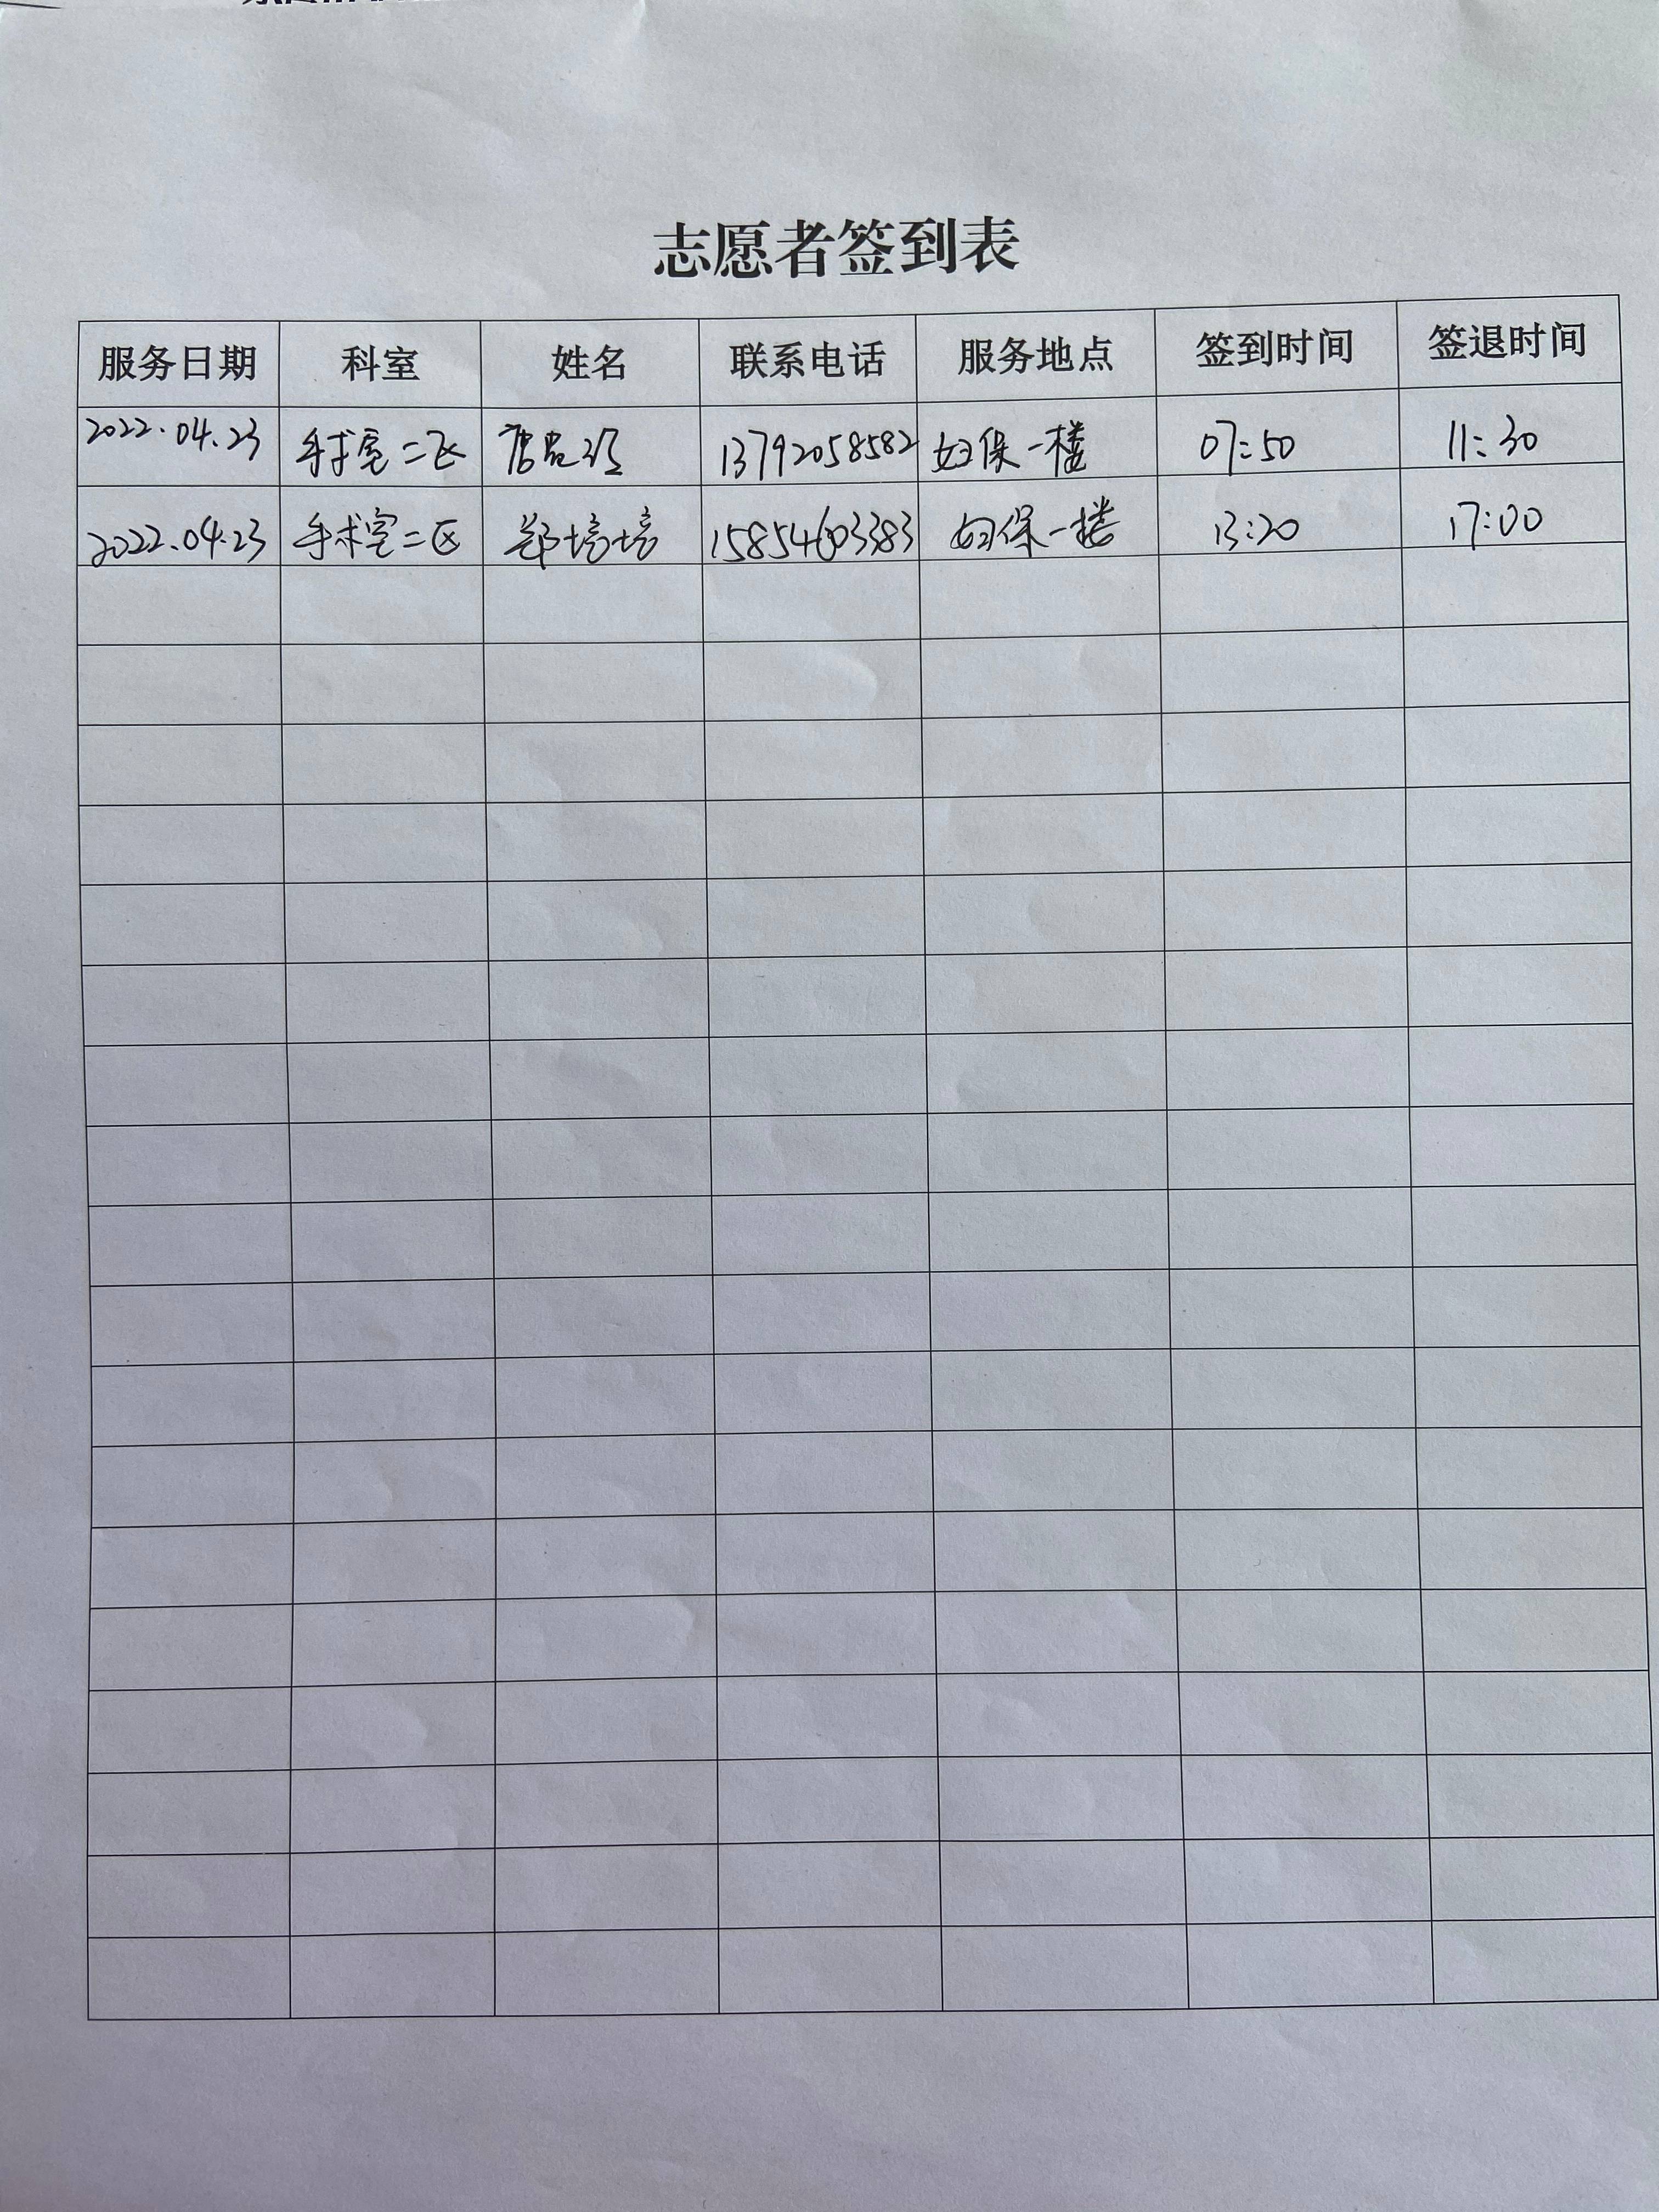 志愿者签到表
服务日期 科室 姓名 联系电话 服务地点 签到时间 签退时间
2022.04.23 手术室二区 13792058582 妇保一楼 07:50 11:30
2022.04.23 手术室二区 郑培培 15854603383 妇保一楼 13:20 17:00